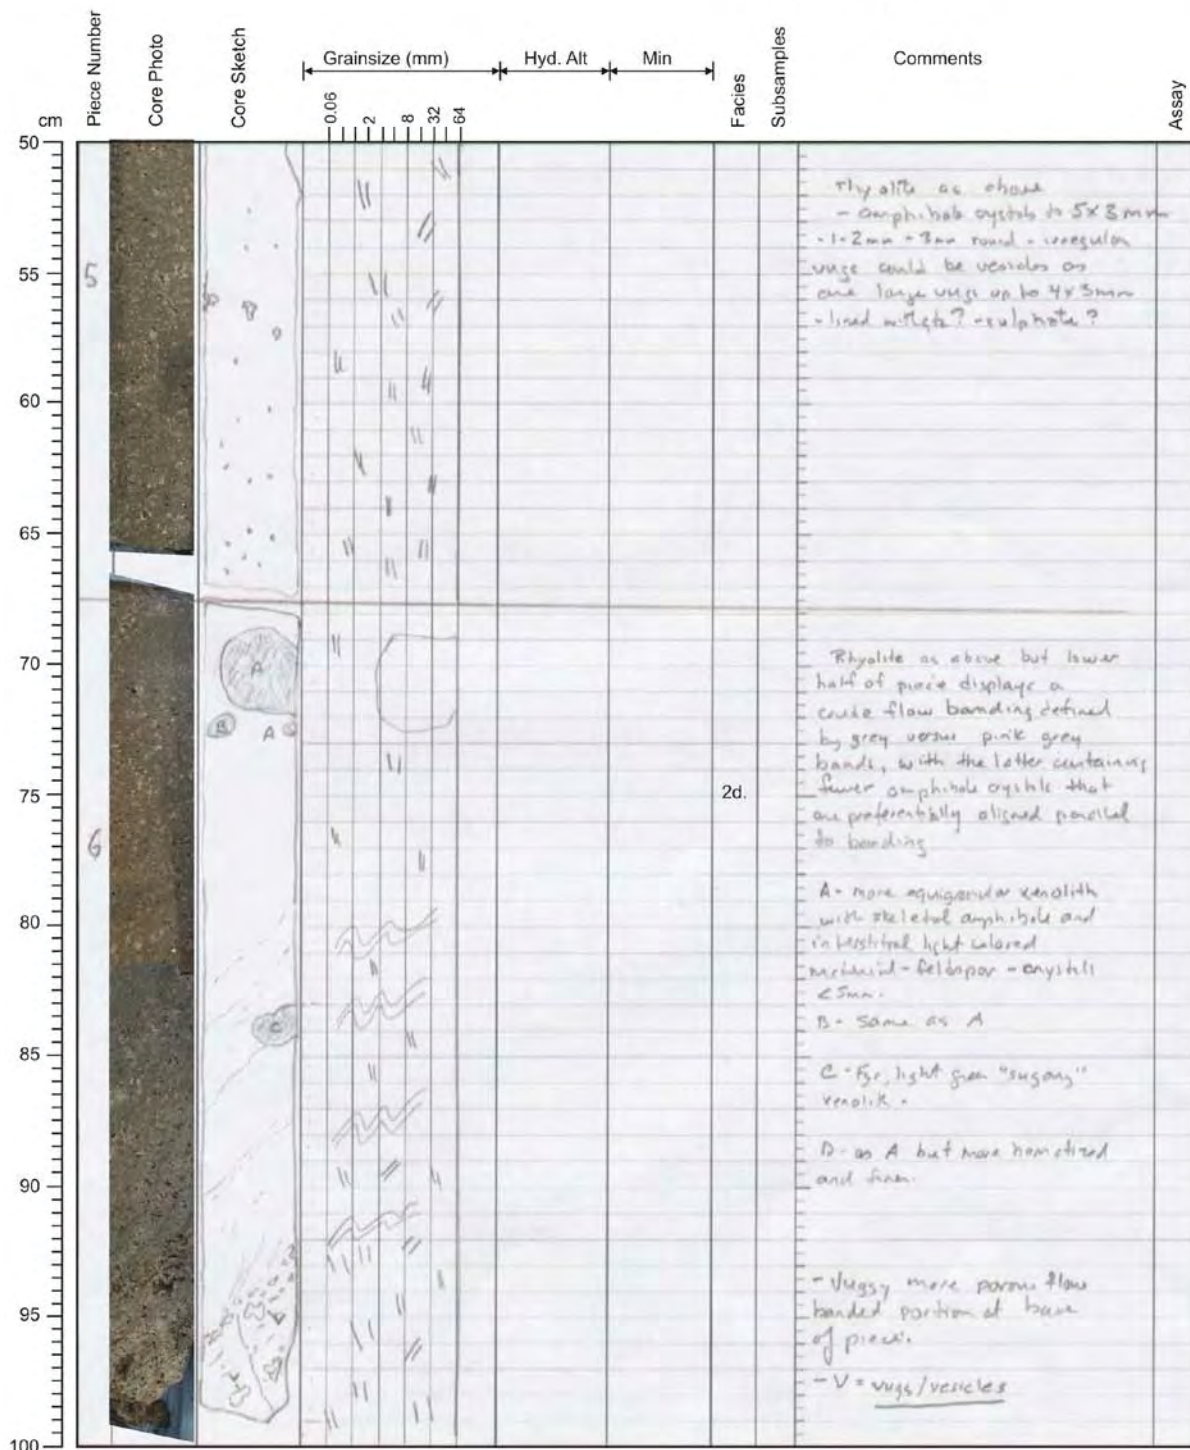 Piece Number
Core Photo
Core Sketch
Grainsize (mm)
Hyd. Alt
Min
Facies
Subsamples
Comments
Assay
cm
0.06
2
8
32
64
50
55
60
65
70
75
80
85
90
95
100
5
6
A
B
A
C
2d.
rhyolite as above
- amphibole crystals to 5x3mm
- 1-2mm - 3mm round - irregular
vugs could be vesicles as
one large vugs up to 4x3mm
- lined ? - sulphate?
Rhyolite as above but lower
half of piece displays a
crude flow banding defined
by grey versus pink grey
bands, with the latter containing
fewer amphibole crystals that
are preferentially aligned parallel
to banding
A - more equigranular xenolith
with skeletal amphibole and
interstitial light colored
material - feldspar - crystals
<5mm.
B - same as A
C - Fgr, light green "sugary"
xenolith.
D - as A but more hematized
and finer.
- Vuggy more porous flow
banded portion at base
of piece.
- V = vugs/vesicles